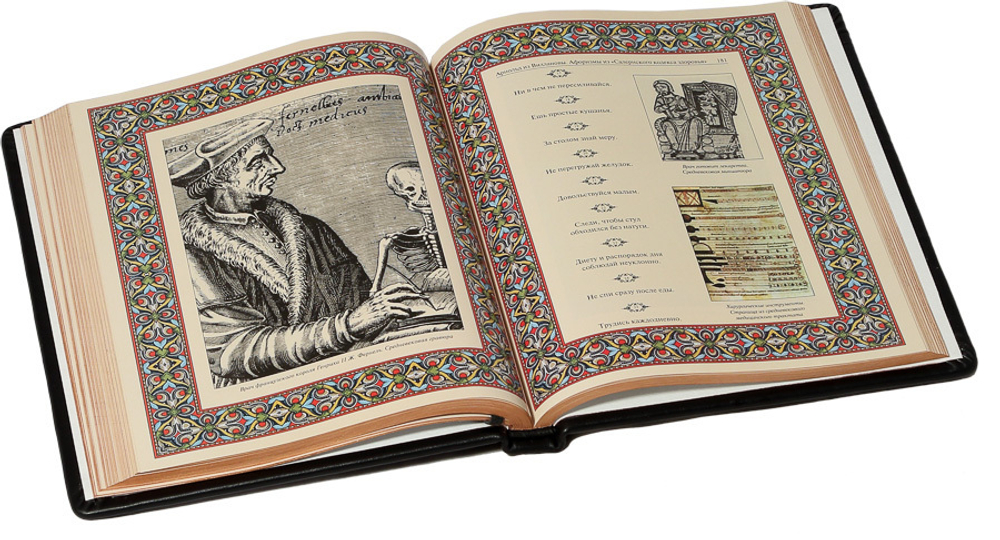 fernelleis ambia
Doct medicus
mes
Врач французского короля Генриха II Ж. Фернель. Средневековая гравюра
Арнольд из Виллановы. Афоризмы из «Салернского кодекса здоровья» 181
Ни в чем не пересиливайся.
Ешь простые кушанья.
За столом знай меру.
Не перегружай желудок.
Довольствуйся малым.
Следи, чтобы стул
обходился без натуги.
Диету и распорядок дня
соблюдай неуклонно.
Не спи сразу после еды.
Трудись каждодневно.
Врач готовит лекарство.
Средневековая миниатюра
Хирургические инструменты.
Страница из средневекового
медицинского трактата